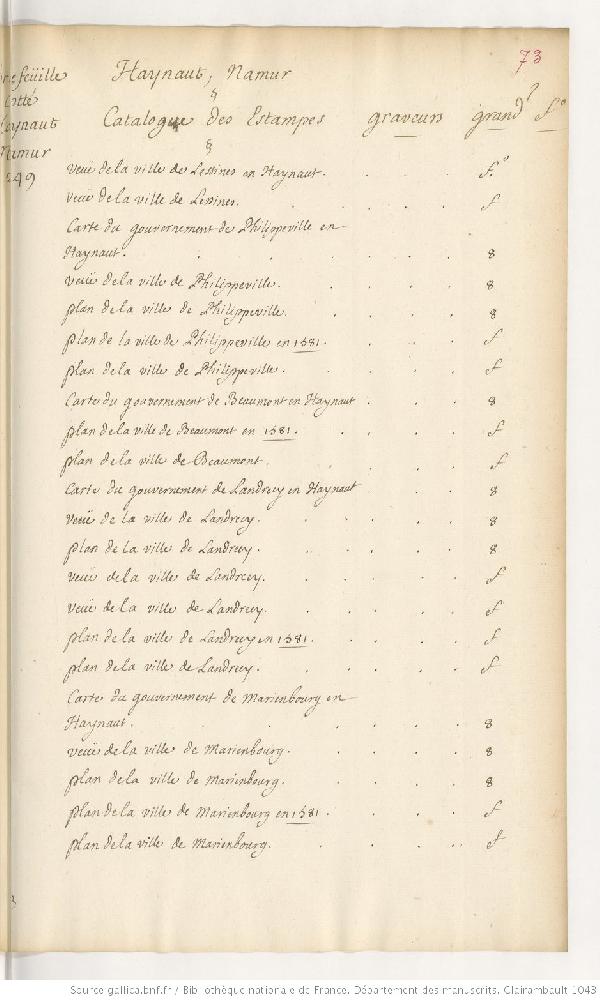 73
Haynaut, Namur
§
Catalogue des Estampes graveurs grand? f.º
§
feüille
Cotté
haynaut
Namur
249
veüe de la ville de Lessines en Haynaut. f.º
veüe de la ville de Lessines. f
Carte du gouvernement de Philippeville en
Haynaut. 8
veüe de la ville de Philippeville. 8
plan de la ville de Philippeville. 8
plan de la ville de Philippeville en 1581. f
plan de la ville de Philippeville. f
Carte du gouvernement de Beaumont en Haynaut. 8
plan de la ville de Beaumont en 1581. f
plan de la ville de Beaumont. f
Carte du gouvernement de Landrecy en Haynaut 8
veüe de la ville de Landrecy. 8
plan de la ville de Landrecy. 8
veüe de la ville de Landrecy. f
veüe de la ville de Landrecy. f
plan de la ville de Landrecy en 1581. f
plan de la ville de Landrecy. f
Carte du gouvernement de Marienbourg en
Haynaut. 8
veüe de la ville de Marienbourg. 8
plan de la ville de Marienbourg. 8
plan de la ville de Marienbourg en 1581. f
plan de la ville de Marienbourg. f
Source gallica.bnf.fr / Bibliothèque nationale de France. Département des manuscrits. Clairambault 1043